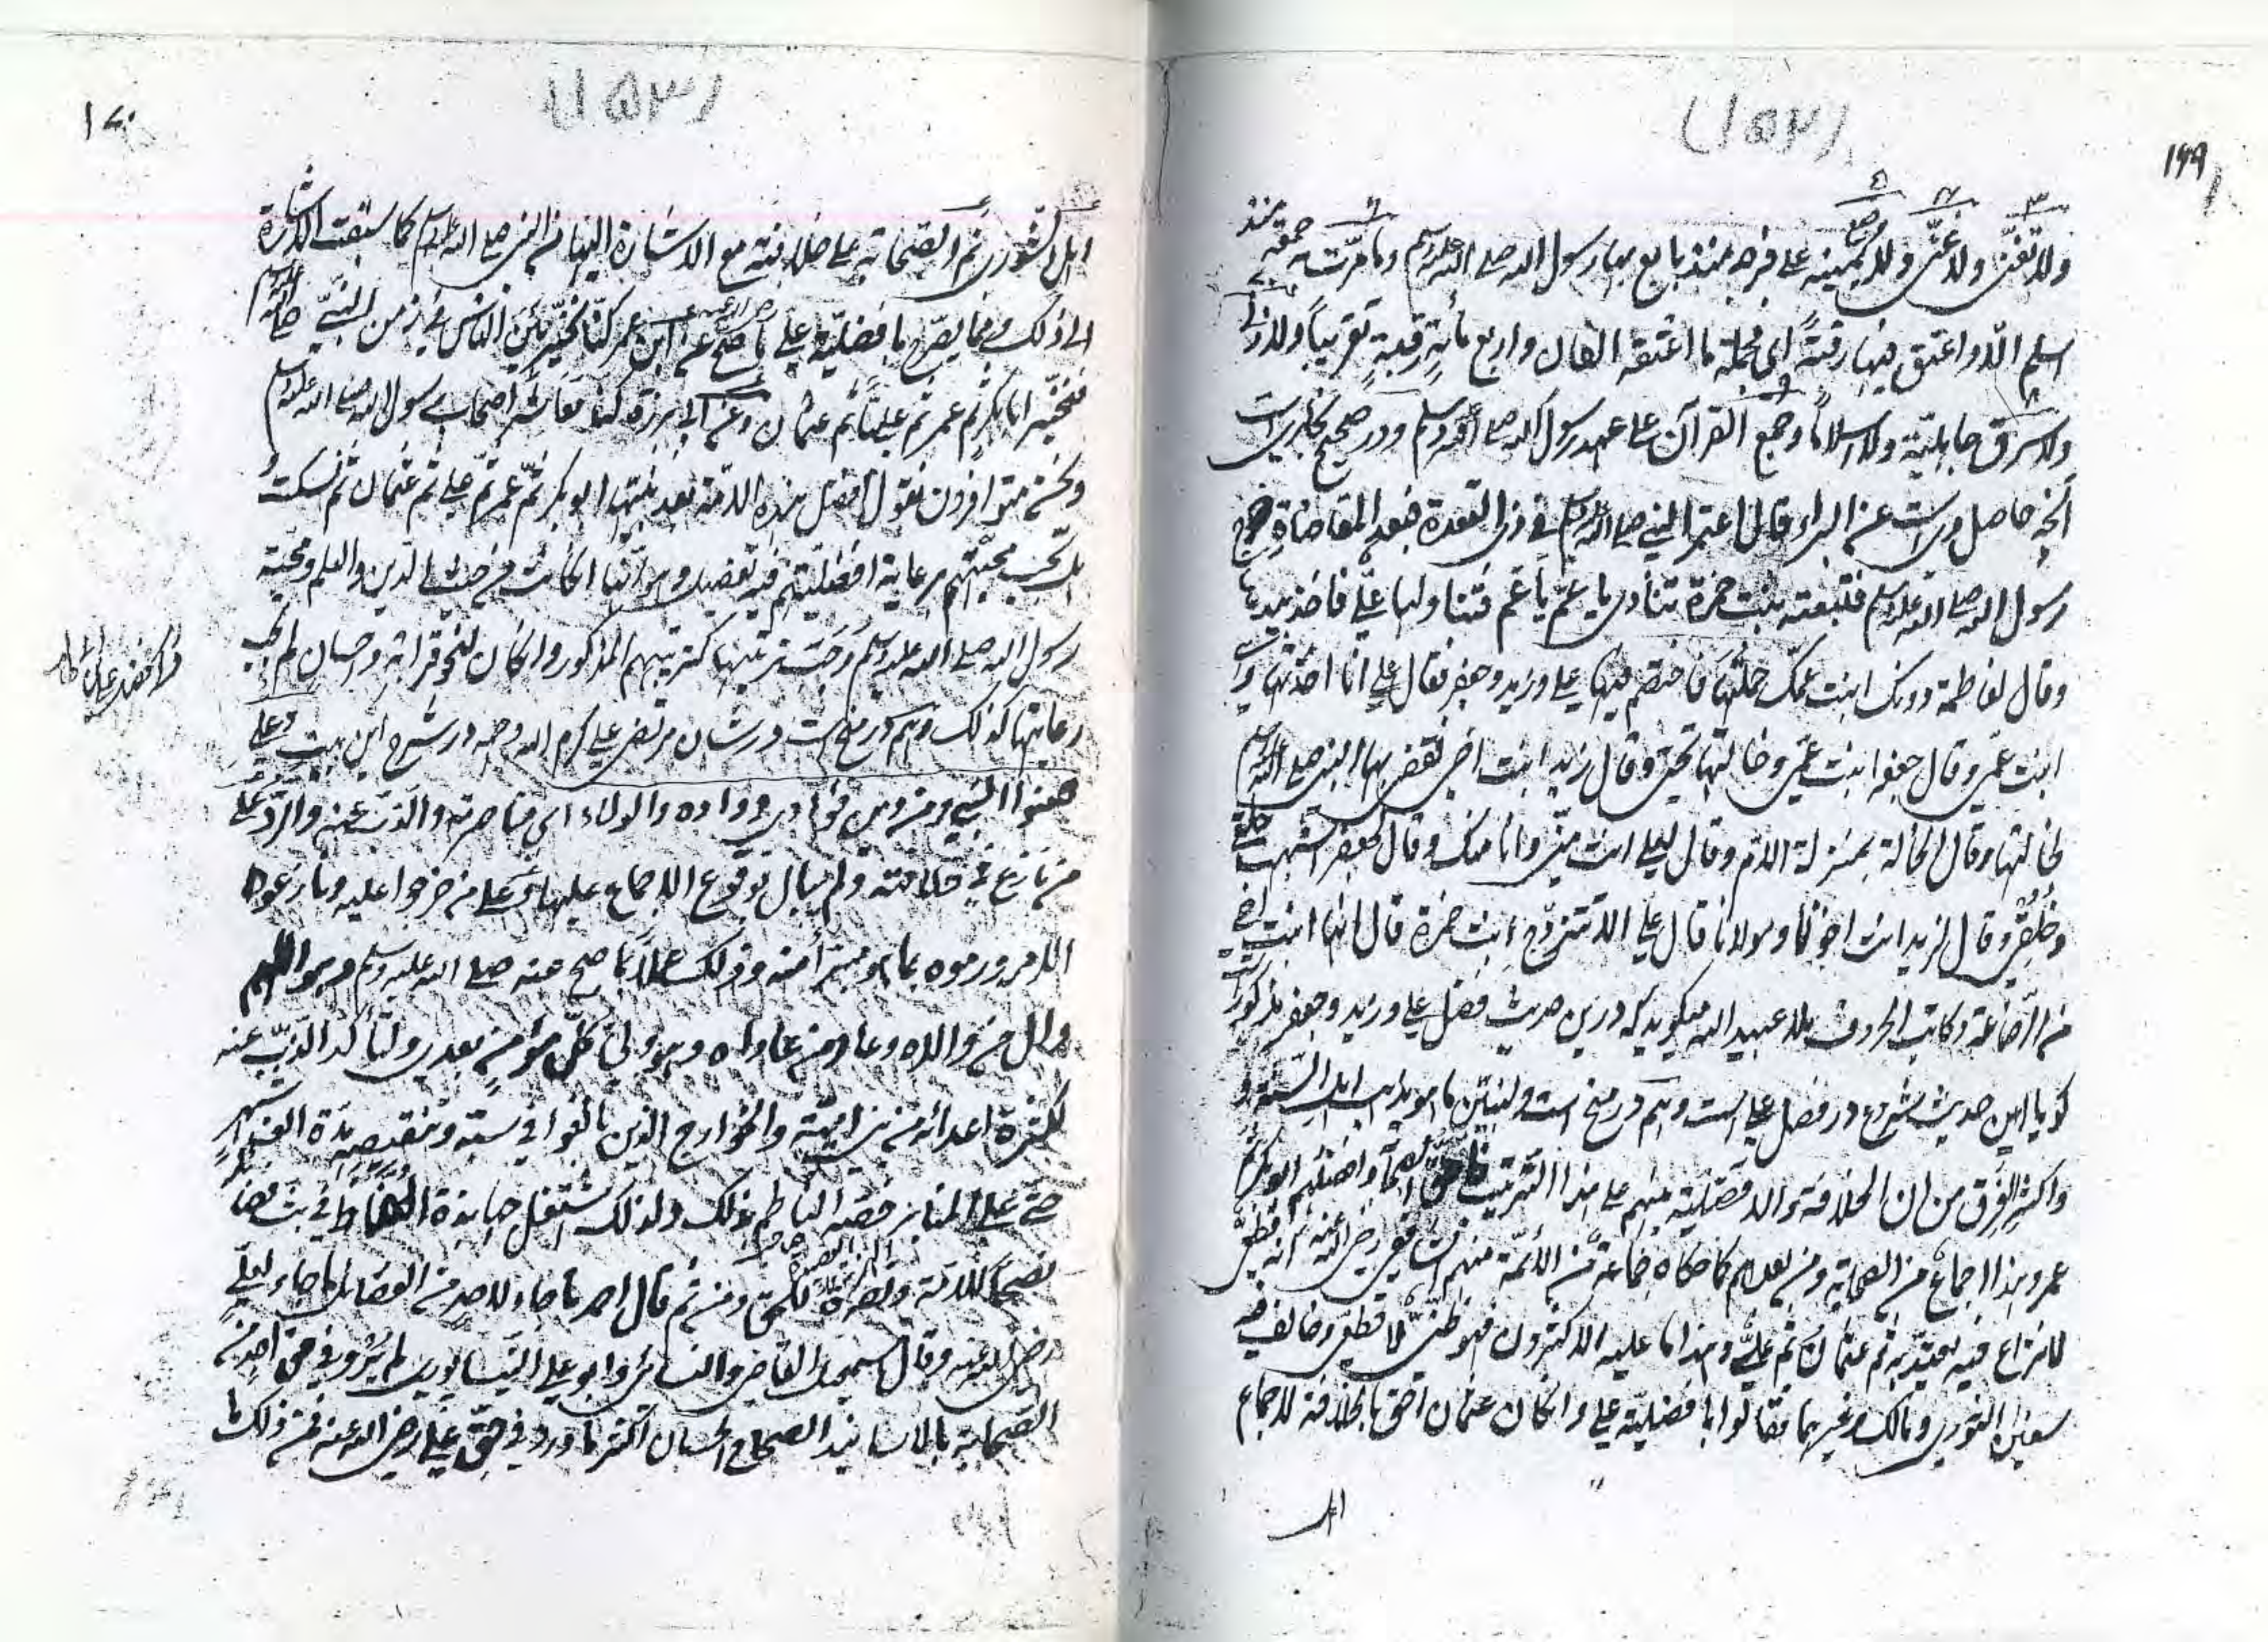 ۱۶۹
(۱۵۲)
ولا تغنی ولا عنی ولا وضع یمینه علی فرجه منذ بایع بها رسول الله صلی الله علیه وسلم وما مرت به جمعة منذ
اسلم الا واعتق فیها رقبة ای فجملة ما اعتقه الفان واربع مائة رقبة تقریبا ولا زنی
ولا سرق جاهلیة ولا اسلاما وجمع القرآن علی عهد رسول الله صلی الله علیه وسلم ودر صحیح بخاریست
آنچه حاصل ویست عن البراء قال اعتمر النبی صلی الله علیه وسلم فی ذی القعدة فبعد المقاضاة خرج
رسول الله صلی الله علیه وسلم فتبعته بنت حمزة تنادی یا عم یا عم فتناولها علی فاخذ بیدها
وقال لفاطمة دونک ابنت عمک حملتها فاختصم فیها علی وزید وجعفر فقال علی انا اخذتها وهی
ابنت عمی وقال جعفر ابنت عمی وخالتها تحتی وقال زید ابنت اخی فقضی بها النبی صلی الله علیه وسلم
لخالتها وقال الخالة بمنزلة الام وقال لعلی انت منی وانا منک وقال لجعفر اشبهت خلقی
وخلقی وقال لزید انت اخونا ومولانا قال علی الا تتزوج ابنت حمزة قال انها ابنت اخی
من الرضاعة وکاتب الحروف بلا عبید الله میگوید که درین حدیث فضل علی وزید وجعفر مذکور
کویا این حدیث مشروع در فضل علی است وهم در منح است ولنبین ما هو یدل اهل السنة و
واکثر الفرق من ان الخلافة والافضلیة بینهم علی هذا الترتیب فاحق الصحابة وافضلهم ابو بکر ثم
عمر وهذا اجماع من الصحابة ومن بعدهم کما حکاه جماعة من الائمة منهم الشافعی رضی الله عنه انه قطعی
لا نزاع فیه یعتد به ثم عثمان ثم علی وهذا ما علیه الاکثرون فهو ظنی لا قطعی وخالف فیه
سفین الثوری ومالک وغیرهما فقالوا بافضلیة علی وان کان عثمان احق بالخلافة لاجماع
اهل
۱۷۰
(۱۵۳)
اهل الشوری ثم الصحابة علی خلافته مع الاشارة الیها من النبی صلی الله علیه وسلم کما سبقت الاشارة
الی ذلک ومما یصرح بافضلیة علی ما صح عن ابن عمر رضی الله عنه کنا نخیر بین الناس فی زمن النبی صلی الله علیه وسلم
فنخیر ابا بکر ثم عمر ثم علیا ثم عثمان وعن ابی هریرة کنا معاشر اصحاب رسول الله صلی الله علیه وسلم
ونحن متوافرون نقول افضل هذه الامة بعد نبیها ابو بکر ثم عمر ثم علی ثم عثمان ثم نسکت
بل تجب محبتهم رعایة افضلیتهم فیه تفصیل وهو انها ان کانت من حیث الدین والعلم ومحبة
رسول الله صلی الله علیه وسلم وجب ترتیبها کترتیبهم المذکور وان کان لنحو قرابة واحسان لم یجب
رعایتها کذلک وهم در منح است در شان مرتضی علی کرم الله وجهه در شرح این بیت وعلی
صنو النبی ومن دین فؤادی وداده والولاء ای مناصرته والذب عنه والرد علی
من نازع فی خلافته ولم یبال بوقوع الاجماع علیها وعلی من خرجوا علیه ونازعوه
الامر ورموه بما هو مبترأ منه وذلک عملا بما صح عنه صلی الله علیه وسلم وهو اللهم
وال من والاه وعاد من عاداه وهو ولی کل مؤمن بعدی ولتأکد الذب عنه
لکثرة اعدائه من بنی امیة والخوارج الذین بالغوا فی سبه وتنقیصه مدة الف شهر
حتی علی المنابر خصه الناظم بذلک ولذلک اشتغل جهابذة الحفاظ فی بث فضائله
نصحا للامة ونصرة للحق ومن ثم قال احمد ما جاء لاحد من الفضائل ما جاء لعلی
رضی الله عنه وقال اسمعیل القاضی والنسائی وابو علی النیسابوری لم یرو فی حق احد من
الصحابة بالاسانید الصحاح الحسان اکثر ما ورد فی حق علی رضی الله عنه فمن ذلک ما